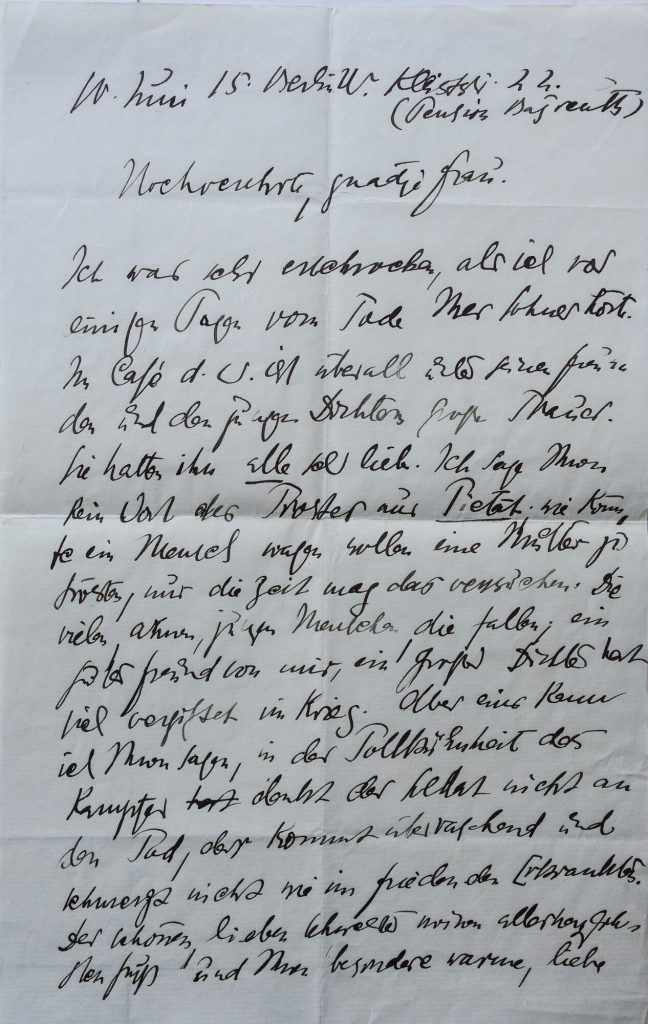 10. Juni 15. Berlin W. Kleiststr. 22.
(Pension Bayreuth)
Hochverehrte, gnädige Frau.
Ich war sehr erschrocken, als ich vor
einigen Tagen vom Tode Ihres Sohnes hörte.
Im Café d. W. ist überall unter seinen Freun
den und den jungen Dichtern große Trauer.
Sie hatten ihn alle sehr lieb. Ich sage Ihnen
kein Wort des Trostes aus Pietät. wie könn,
te ein Mensch wagen wollen eine Mutter zu
trösten, nur die Zeit mag das versuchen. Die
vielen armen, jungen Menschen die fallen; ein
guter Freund von mir, ein großer Dichter hat
sich vergiftet im Krieg. Aber eins kann
ich Ihnen sagen, in der Tollkühnheit des
Kampfes denkt der Soldat nicht an
den Tod, der kommt überraschend und
schmerzt nicht wie im Frieden den Erkrankten.
Der schönen, lieben Schwester meinen allerherzlich-
sten Gruß und Ihnen besondere warme, liebe